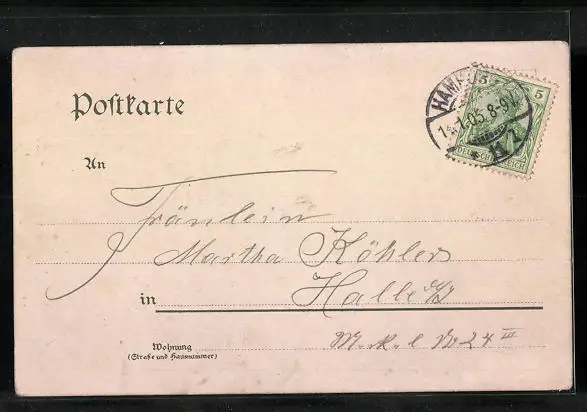 Postkarte
5 5
HAMBURG
1.1.05. 8-9V.
11
DEUTSCHES REICH
An
Fräulein
Martha Köhler
in Halle a/S
Wohnung
(Straße und Hausnummer)
No 24 III